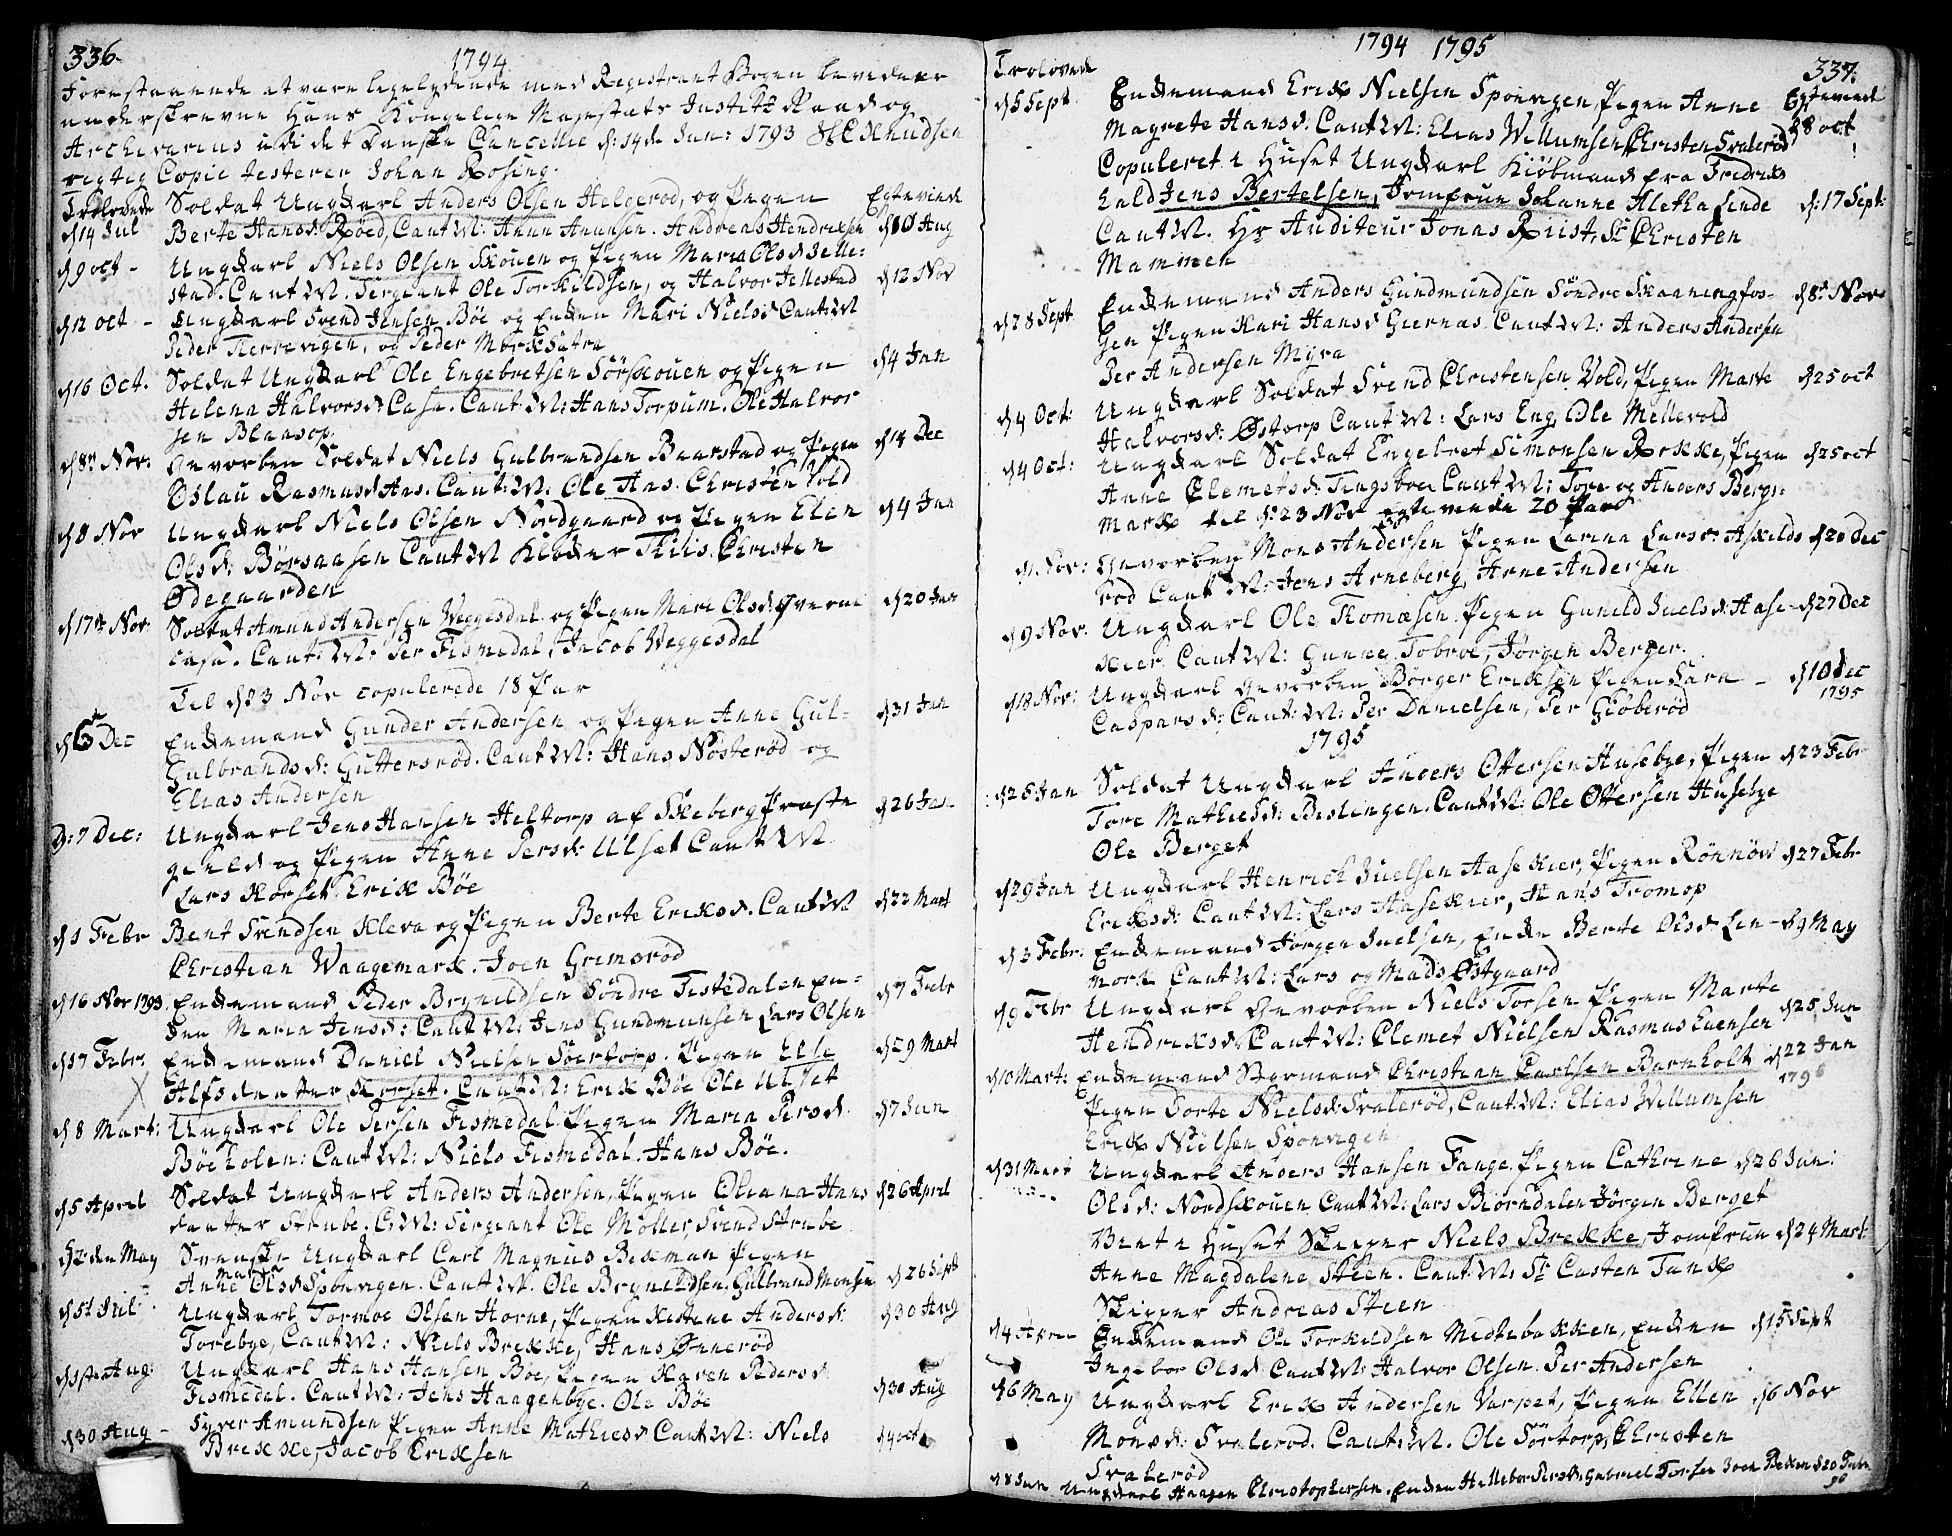 336.
1794
Forestaaende at være ligelydende med Registrant Bogen bevidner
underskrevne Hans Kongelige Majestæts Justitz Raad og
Archivarius udi det Danske Cancellie d: 14de Jun: 1793 Knudsen
rigtig Copie testerer Johan Rosing.
Trolovede Soldat Ungkarl Anders Olsen Helgerød, og Pigen Egteviede
d 14 Jul Berte Hansd: Røed, Caut. M: Amun Amunsen. Andreas Hendriksen d 10 Aug
d 9 oct - Ungkarl Niels Olsen Skouen og Pigen Maria Olsd Jelle-
stad. Caut M. Sergeant Ole Torkildsen, og Halvor Jellestad d 12 Nov
d 12 oct - Ungkarl Svend Jensen Bøe og Enken Mari Nielsd Caut M
Peder Tierrevigen, og Peder Mørksætra
d 16 Oct. Soldat Ungkarl Ole Engebretsen Sørskouen og Pigen d 4 Jan
Helena Halvorsd Casa. Caut M: Hans Torpum. Ole Halvor
sen Blaasop.
d 8de Nov: Gevorben Soldat Niels Gulbrandsen Baarstad og Pigen d 14 Dec
Øslau Rasmusd Aas. Caut. M: Ole Aas. Christen Vold
d 8 Nov Ungkarl Niels Olsen Nordgaard og Pigen Elen d 4 Jan
Olsd: Børsaasen Caut M Kløcker Thiis. Christen
Ødegaarden
d 17de Nov: Soldat Amund Andersen Veggesdal og Pigen Mari Olsd: Øverne d 20 Jan
casa. Caut: M: Per Fismedal, Jacob Veggesdal
Til d 23 Nov copulerede 18 Par
d 6 Dec Enkemand Gunder Andersen og Pigen Anne Gul- d 31 Jan
Gulbrandsd: Guttersrød. Caut M: Hans Nøsterød og
Elias Andersen
D: 7 Dec: Ungkarl Jens Hansen Heltorp af Skeberg Præste d 26 Jan
gield og Pigen Anne Persd: Ulset Caut M
Lars Korset. Erik Bøe
d 1 Febr Bent Svendsen Kleva og Pigen Berte Eriksd. Caut M d 22 Mart
Christian Waagemark. Joen Grimsrød
d 16 Nov 1793. Enkemand Peder Brynildsen Søndre Tistedalen En- d 7 Febr
ken Maria Jensd: Caut M: Jens Gundmunsen Lars Olsen
d 17 Febr. Enkemand Daniel Nielsen Søertorp. Pigen Else d 29 Mart
Alfsdaatter Korset. Caut M: Erik Bøe Ole Ulset
d 8 Mart: Ungkarl Ole Persen Fismedal. Pigen Maria Persd. d 7 Jun
Bøeholen: Caut M: Niels Fismedal. Hans Bøe.
d 5 April Soldat Ungkarl Anders Andersen, Pigen Oleana Hans d 26 April
daatter Strube. C M: Sergeant Ole Møller, Svend Strube
d 2den May Svenske Ungkarl Carl Magnus Bekman Pigen
Anne Maria Olsd Sponvigen. Caut M. Ole Brynildsen. Gulbrand Monsen d 26 Sept
d 5te Jul Ungkarl Tormoe Olsen Horne, Pigen Kistene Andersd: d 30 Aug
Torebye, Caut M: Niels Brekke, Hans Ønnerød
d 1ste Aug: Ungkarl Hans Hansen Bøe, Pigen Karen Pedersd.
Fismedal. Caut M: Jens Haagenbye. Ole Bøe d 30 Aug
d 30 Aug - Syver Amundsen Pigen Anne Mathiesd Caut M: Niels d 4 oct
Brekke, Jacob Eriksen
1794 1795
337.
Trolovede
d 5 Sept Enkemand Erik Nielsen Sponvigen Pigen Anne Egteviede
Magrete Hansd: Caut M: Elias Willumsen, Christen Svalerød d 8 oct
Copuleret i Huset Ungkarl Kiøbmand fra Fredriks
hald Jens Bertelsen, Jomfrue Johanne Aletha Linde d: 17 Sept:
Caut M. Hr Auditeur Jonas Riist, Sr Christen
Mammen
d 28 Sept Enkemand Anders Gundmundsen Søndre Skaaningfos- d 8de Nov
sen Pigen Kari Hansd Giernæs. Caut M: Anders Andersen
Per Andersen Myra
d 4 Oct: Ungkarl Soldat Svend Christensen Vold, Pigen Marte d 25 oct
Halvorsd: Østorp Caut M: Lars Eng, Ole Mellevold
d 4 Oct: Ungkarl Soldat Engebret Simonsen Rokke, Pigen d 25 oct
Anne Clemetsd: Tingsboe Caut M: Tore og Anders Bergs-
mark til d: 23 Nov egteviede 20 Par
d 1 Nov: Gevorben Mons Andersen Pigen Larina Larsd: Askilds d 20 Dec
rød Caut M: Jens Arneberg, Arne Andersen
d 9 Nov. Ungkarl Ole Thomæsen Pigen Gunild Juelsd: Aase- d 27 Dec
kier Caut M: Gunne Tobroe, Jørgen Berger.
d 18 Nov: Ungkarl Gevorben Børger Eriksen Pigen Sara - d 10 Dec
1795
Caspersd: Caut: M: Per Danielsen, Per Giøberød
1795
d 28 Jan Soldat Ungkarl Anders Ottersen Husebye, Pigen d 23 Febr
Tore Mathiesd: Bislingen. Caut M: Ole Ottersen Husebye
Ole Berget
d 29 Jan Ungkarl Henrich Juelsen Aasekier, Pigen Rønnøv d 27 Febr
Eriksd: Caut M: Lars Aasekier, Hans Tromop
d 3 Febr. Enkemand Jørgen Juelsen, Enken Berte Olsd Len- d 9 May
mork Caut M: Lars og Mads Østgaard
d 9 Febr Ungkarl Gevorben Niels Torsen Pigen Marte
Hendriksd: Caut M: Clemet Nielsen Rasmus Evensen d 25 Jun
d 10 Mart: Enkemand Styrmand Christian Carlsen Barnholt d 22 Jan
1796
Pigen Dorte Nielsd: Svalerød, Caut. M: Elias Willumsen
Erik Nielsen Sponvigen
d 31 Mart Ungkarl Anders Hansen Fange. Pigen Cathrine d 26 Jun:
Olsd: Nordskouen Caut M: Lars Biørndalen Jørgen Berget
Viet i Huset Skipper Niels Brekke, Jomfrue d 24 Mart
Anne Magdalene Steen. Caut: M: Sr Casten Tank
Skipper Andreas Steen
d 4 April Enkemand Ole Torkildsen Midtebakken, Enken d 15 Sept
Ingebor Olsd: Caut M: Halvor Olsen. Per Andersen
d 6 May Ungkarl Erik Andersen Varpet, Pigen Ellen d 6 Nov
Monsd: Svalerød. Caut: M. Ole Sørtorp, Christen
Svalerød
d 8 Jun Ungkarl Haagen Christophersen. Enken Hellebor Persd: Gabriel Torsen Joen Bekken d 20 Febr
96